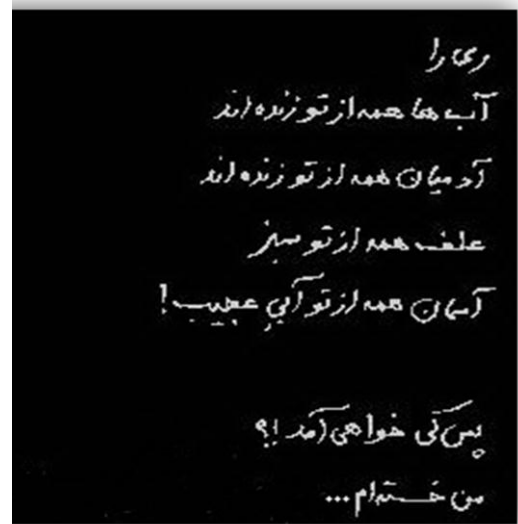 ری را
آب ها همه از تو زنده اند
آدمیان همه از تو زنده اند
علف همه از تو سبز
آسمان همه از تو آبیِ عجیب!
پس کی خواهی آمد !؟
من خسته‌ام...